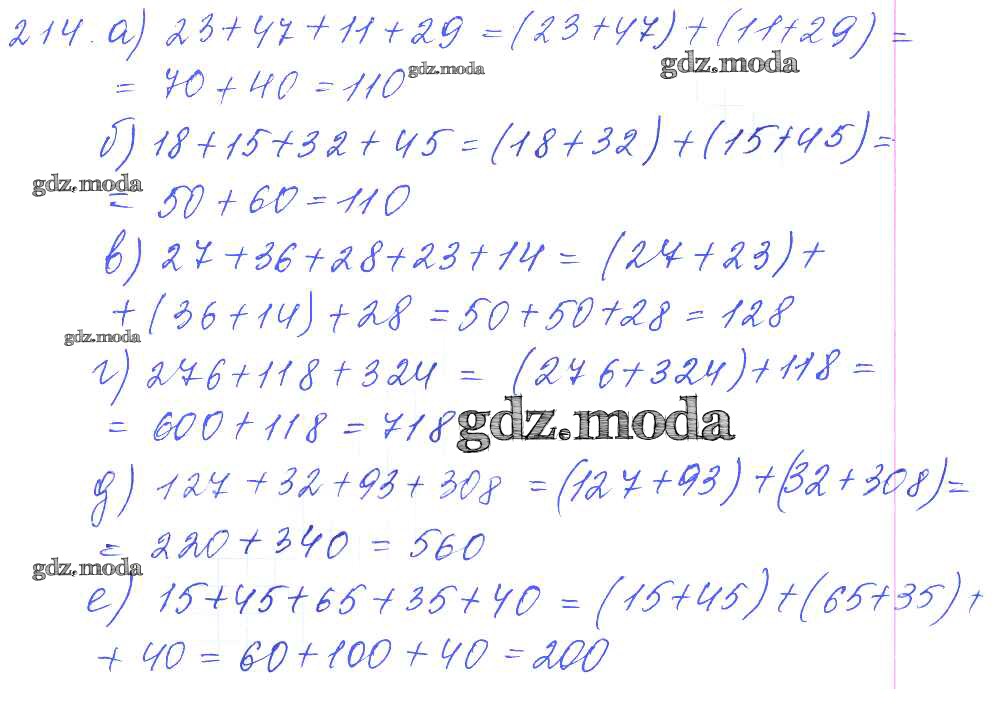 214. а) 23+47+11+29 = (23+47)+(11+29) =
= 70+40 = 110
gdz.moda
gdz.moda
б) 18+15+32+45 = (18+32)+(15+45) =
gdz.moda
= 50+60 = 110
в) 27+36+28+23+14 = (27+23)+
+(36+14)+28 = 50+50+28 = 128
gdz.moda
г) 276+118+324 = (276+324)+118 =
= 600+118 = 718
gdz.moda
д) 127+32+93+308 = (127+93)+(32+308) =
= 220+340 = 560
gdz.moda
е) 15+45+65+35+40 = (15+45)+(65+35)+
+40 = 60+100+40 = 200